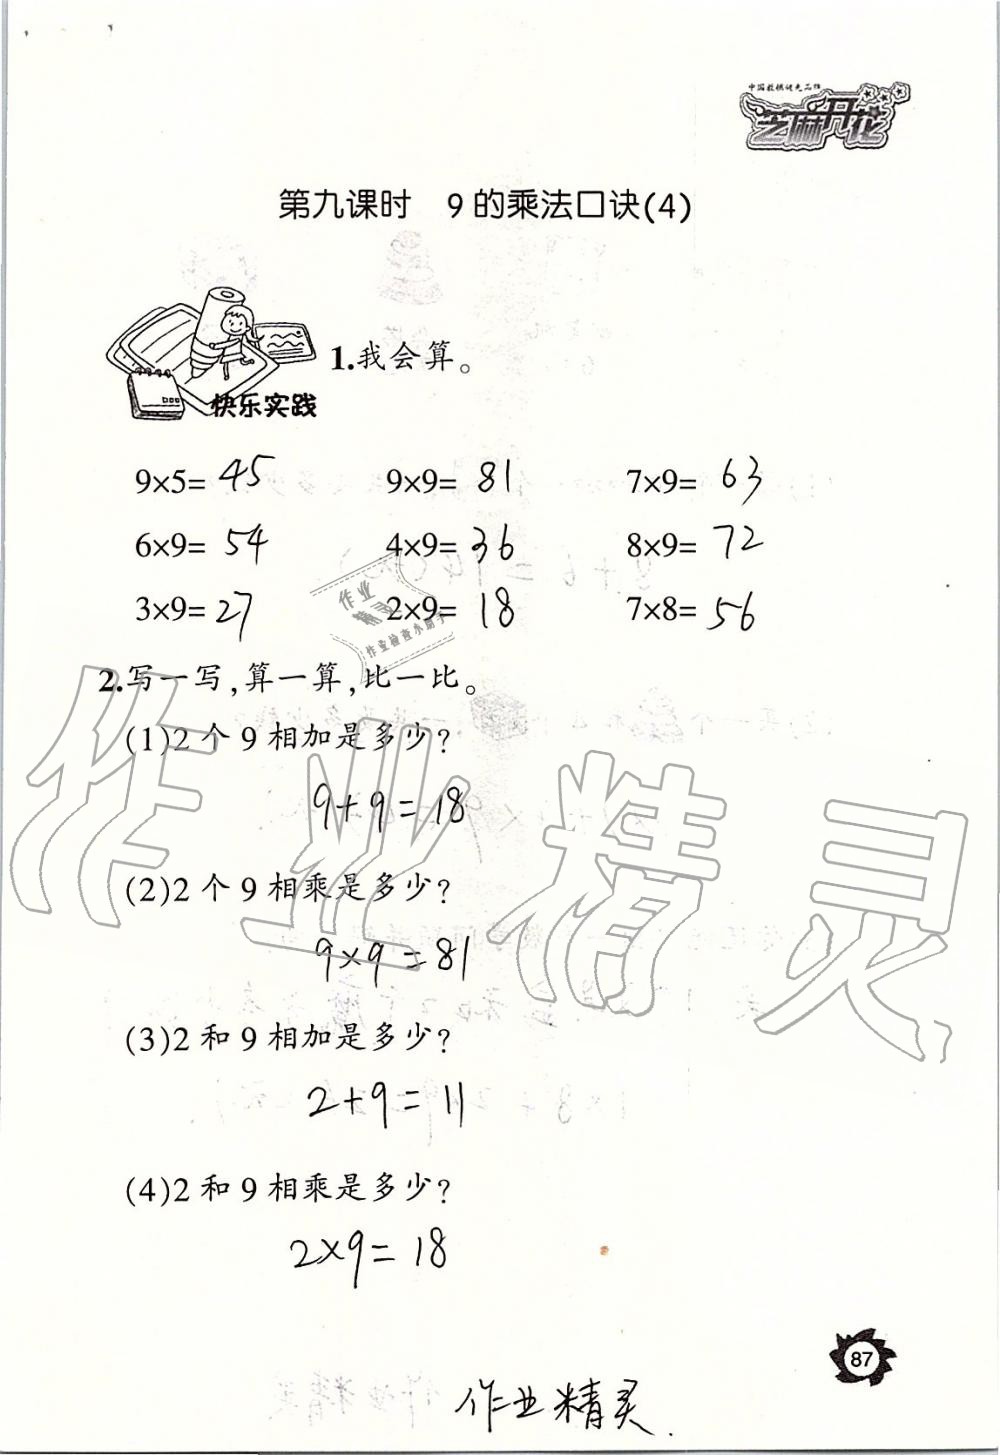 中国教辅领先品牌
芝麻开花
第九课时 9的乘法口诀(4)
1.我会算。
快乐实践
9×5= 45 9×9= 81 7×9= 63
6×9= 54 4×9= 36 8×9= 72
3×9= 27 2×9= 18 7×8= 56
作业
精灵
作业检查小助手
2.写一写,算一算,比一比。
(1)2个9相加是多少?
9+9=18
(2)2个9相乘是多少?
9×9=81
(3)2和9相加是多少?
2+9=11
(4)2和9相乘是多少?
2×9=18
作业精灵
87
作业精灵